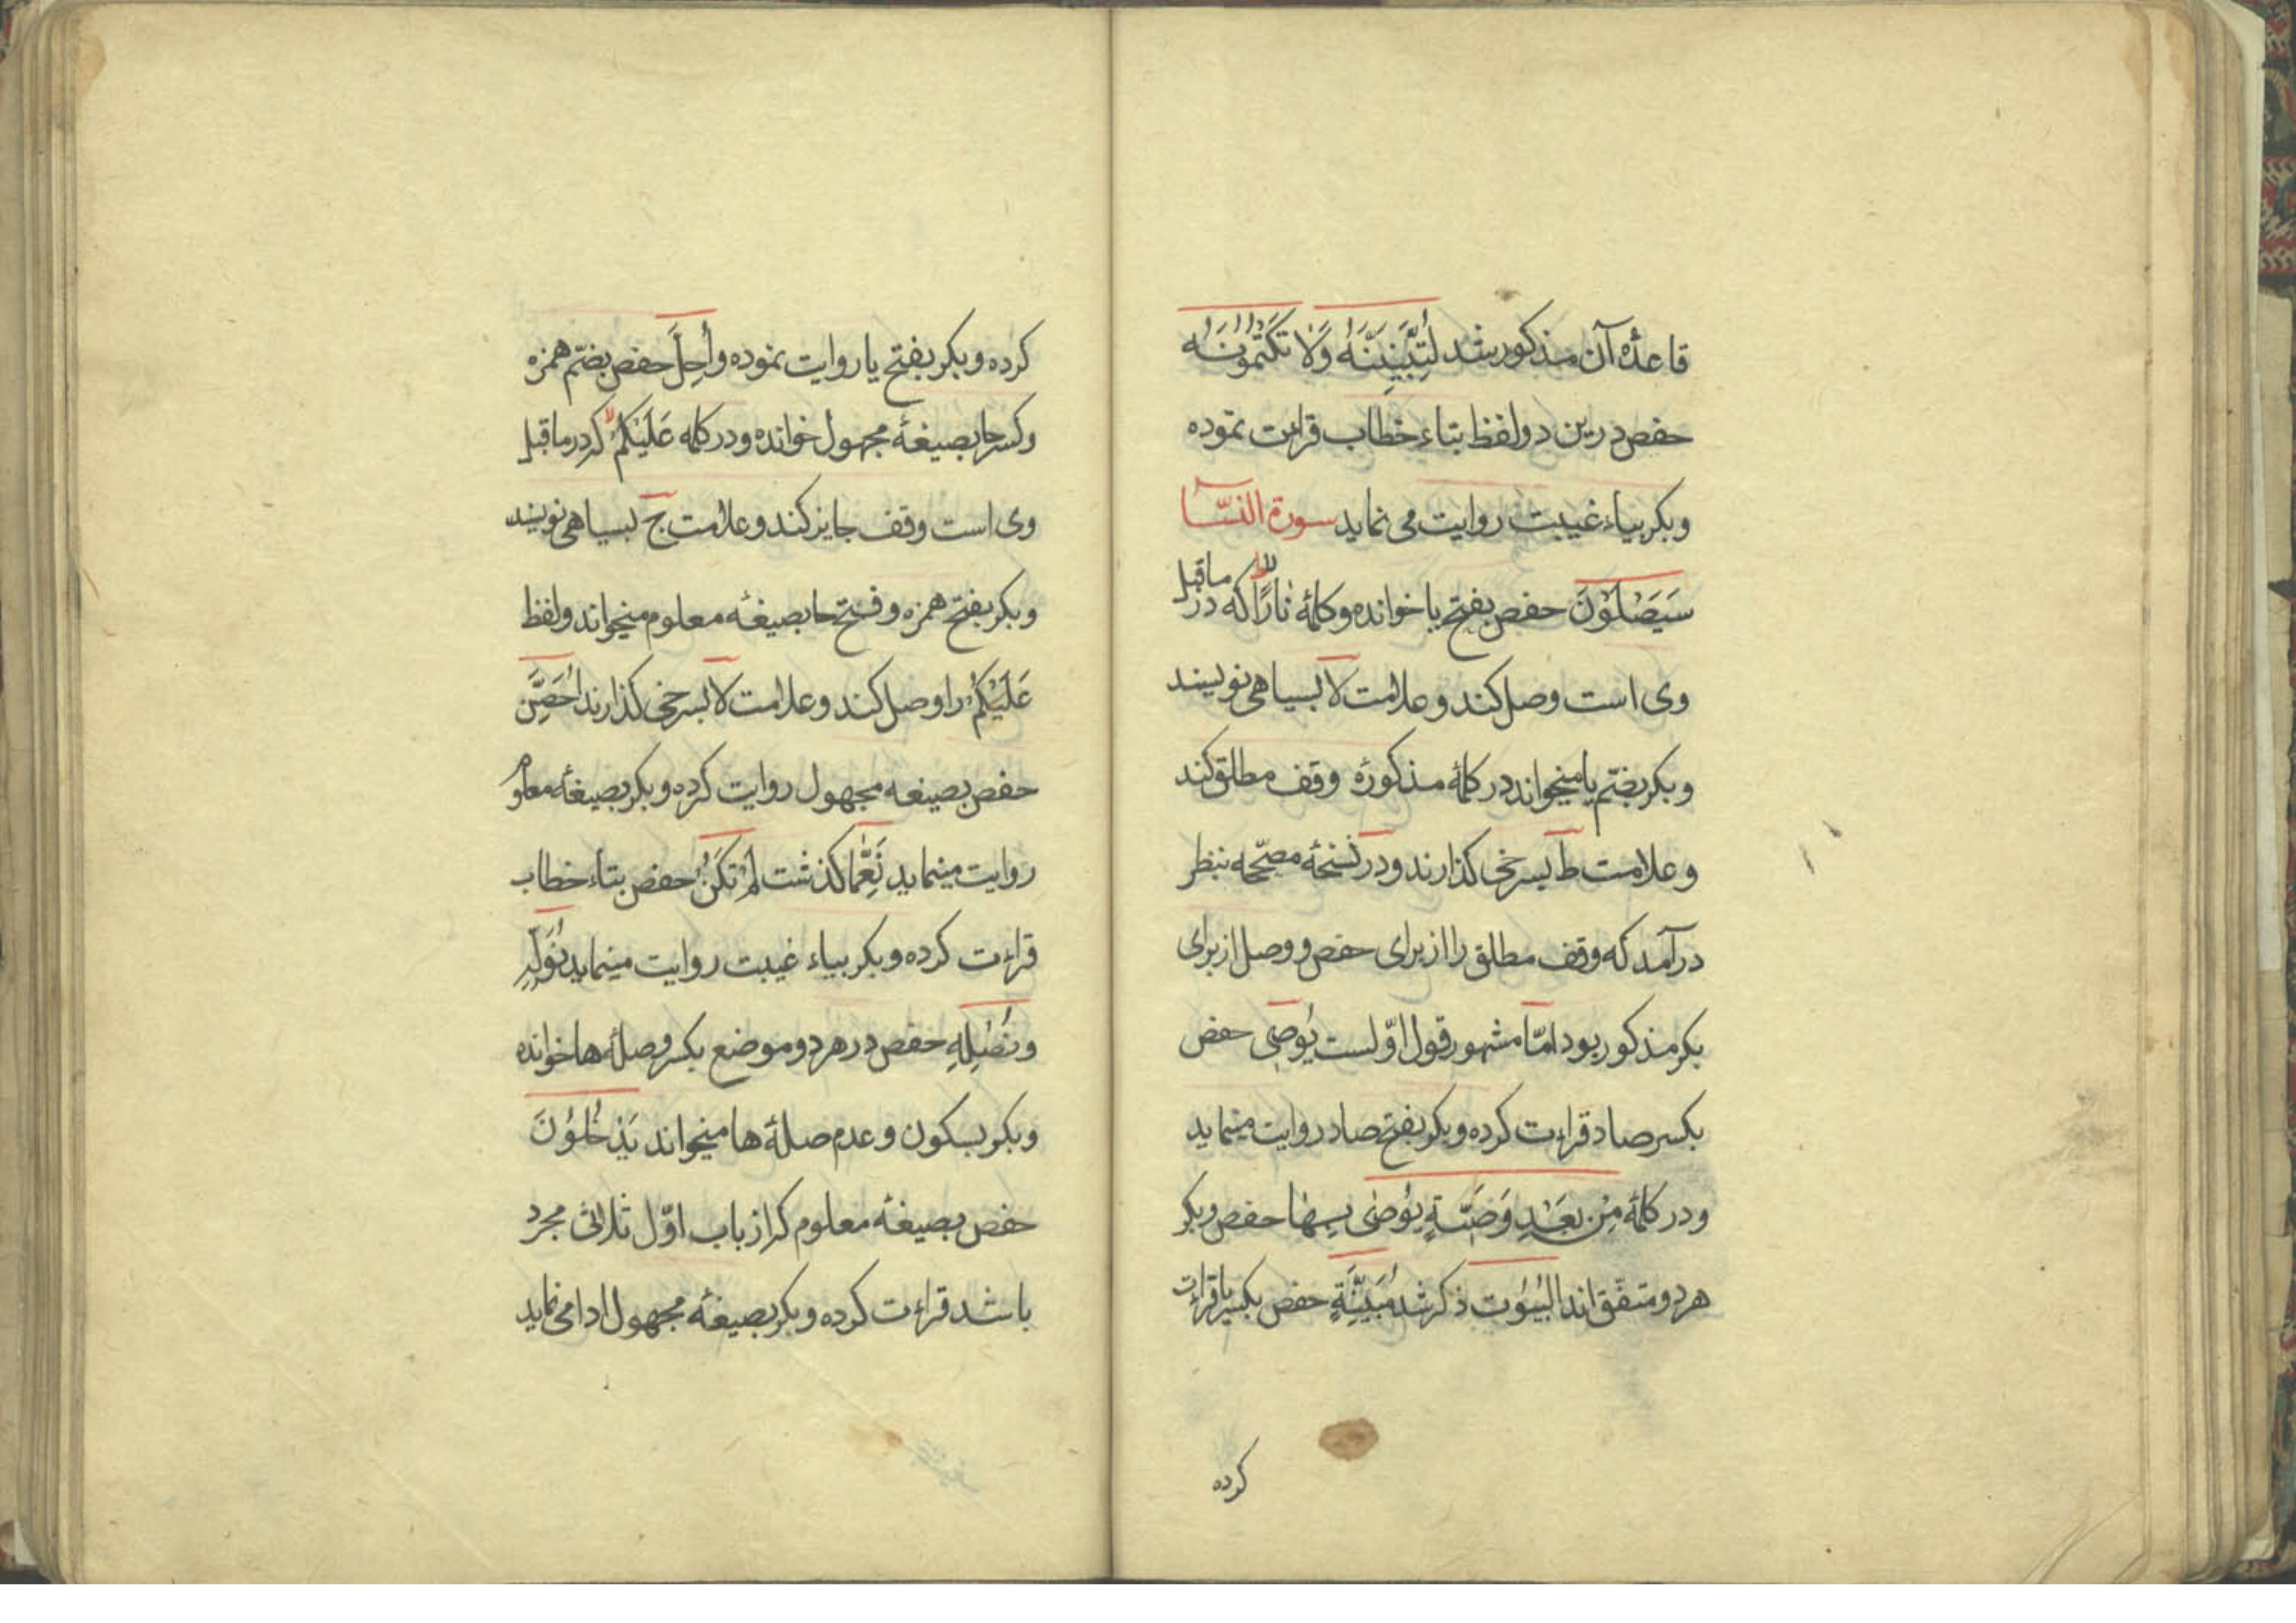 قاعدۀ آن مذکور شد لَتُبَيِّنُنَّهُ وَلَا تَكْتُمُونَهُ
حفص درین دو لفظ بتاء خطاب قراءت نموده
و بکر بیاء غیبت روایت می نماید سورة النسآ
سَيَصْلَوْنَ حفص بفتح یا خوانده و کلمۀ نَارًا که در ماقبل
وی است وصل کند و علامت لا بسیاهی نویسند
و بکر بضمّ یا میخواند در کلمۀ مذکوره وقف مطلق کند
و علامت ط بسرخی گذارند و در نسخۀ مصحّحه بنظر
درآمد که وقف مطلق را از برای حفص و وصل از برای
بکر مذکور بود امّا مشهور قول اوّلست يُوصِي حفص
بکسر صاد قراءت کرده و بکر بفتح صاد روایت مینماید
و در کلمۀ مِنْ بَعْدِ وَصِيَّةٍ يُوصَى بِهَا حفص و بکر
هر دو متفق اند الْبُيُوت ذکر شد مُبَيِّنَةٍ حفص بکسر یا قراءت
کرده
کرده و بکر بفتح یا روایت نموده وأُحِلَّ حفص بضمّ همزه
و کسر حا بصیغۀ مجهول خوانده و در کلمه عَلَيْكُمْ که در ماقبل
وی است وقف جایز کند و علامت ج بسیاهی نویسند
و بکر بفتح همزه و فتح حا بصیغه معلوم میخواند و لفظ
عَلَيْكُمْ را وصل کند و علامت لا بسرخی گذارند اُحْصِنَّ
حفص بصیغه مجهول روایت کرده و بکر بصیغۀ معلوم
روایت مینماید نِعِمَّا گذشت لَمْ تَكُنْ حفص بتاء خطاب
قراءت کرده و بکر بیاء غیبت روایت مینماید نُوَلِّهِ
و نُصْلِهِ حفص در هر دو موضع بکسر و صلۀ ها خوانده
و بکر بسکون و عدم صلۀ ها میخواند يَدْخُلُونَ
حفص بصیغۀ معلوم که از باب اوّل ثلاثی مجرد
باشد قراءت کرده و بکر بصیغۀ مجهول ادا می نماید